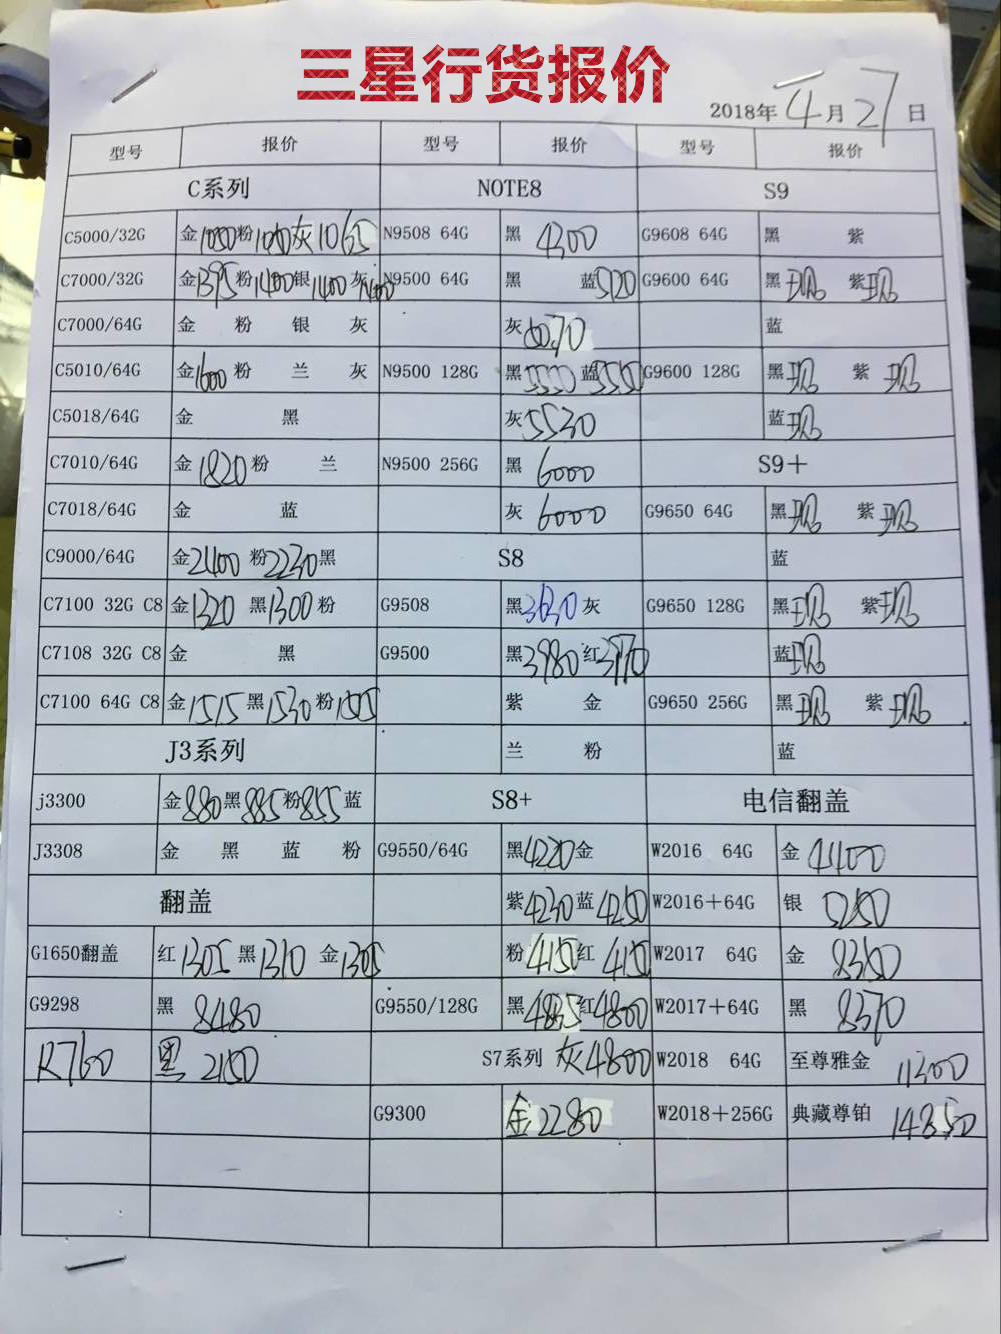 三星行货报价
2018年 4月27日
型号 报价 型号 报价 型号 报价
C系列 NOTE8 S9
C5000/32G 金1050粉 灰1065 N9508 64G 黑 4300 G9608 64G 黑 紫
C7000/32G 金1395粉1400银1400灰1400 N9500 64G 黑 蓝5120 G9600 64G 黑现 紫现
C7000/64G 金 粉 银 灰 灰 蓝
C5010/64G 金1600粉 兰 灰 N9500 128G 黑 蓝5550 G9600 128G 黑现 紫 现
C5018/64G 金 黑 灰5530 蓝现
C7010/64G 金1820粉 兰 N9500 256G 黑 6000 S9＋
C7018/64G 金 蓝 灰 6000 G9650 64G 黑现 紫现
C9000/64G 金2400 粉2230黑 S8 蓝
C7100 32G C8 金1320 黑1300粉 G9508 黑3630灰 G9650 128G 黑现 紫现
C7108 32G C8 金 黑 G9500 黑3980红3970 蓝现
C7100 64G C8 金1515黑1530粉1505 紫 金 G9650 256G 黑现 紫现
J3系列 兰 粉 蓝
j3300 金880黑885粉855蓝 S8+ 电信翻盖
J3308 金 黑 蓝 粉 G9550/64G 黑4220金 W2016 64G 金 4400
翻盖 紫4230蓝4250 W2016＋64G 银 5250
G1650翻盖 红1305 黑1310 金1305 粉4150红 4150 W2017 64G 金 8360
G9298 黑 8480 G9550/128G 黑4835红4800 W2017＋64G 黑 8370
R760 黑 2150 S7系列 灰4800 W2018 64G 至尊雅金 11300
G9300 金2280 W2018＋256G 典藏尊铂 14850